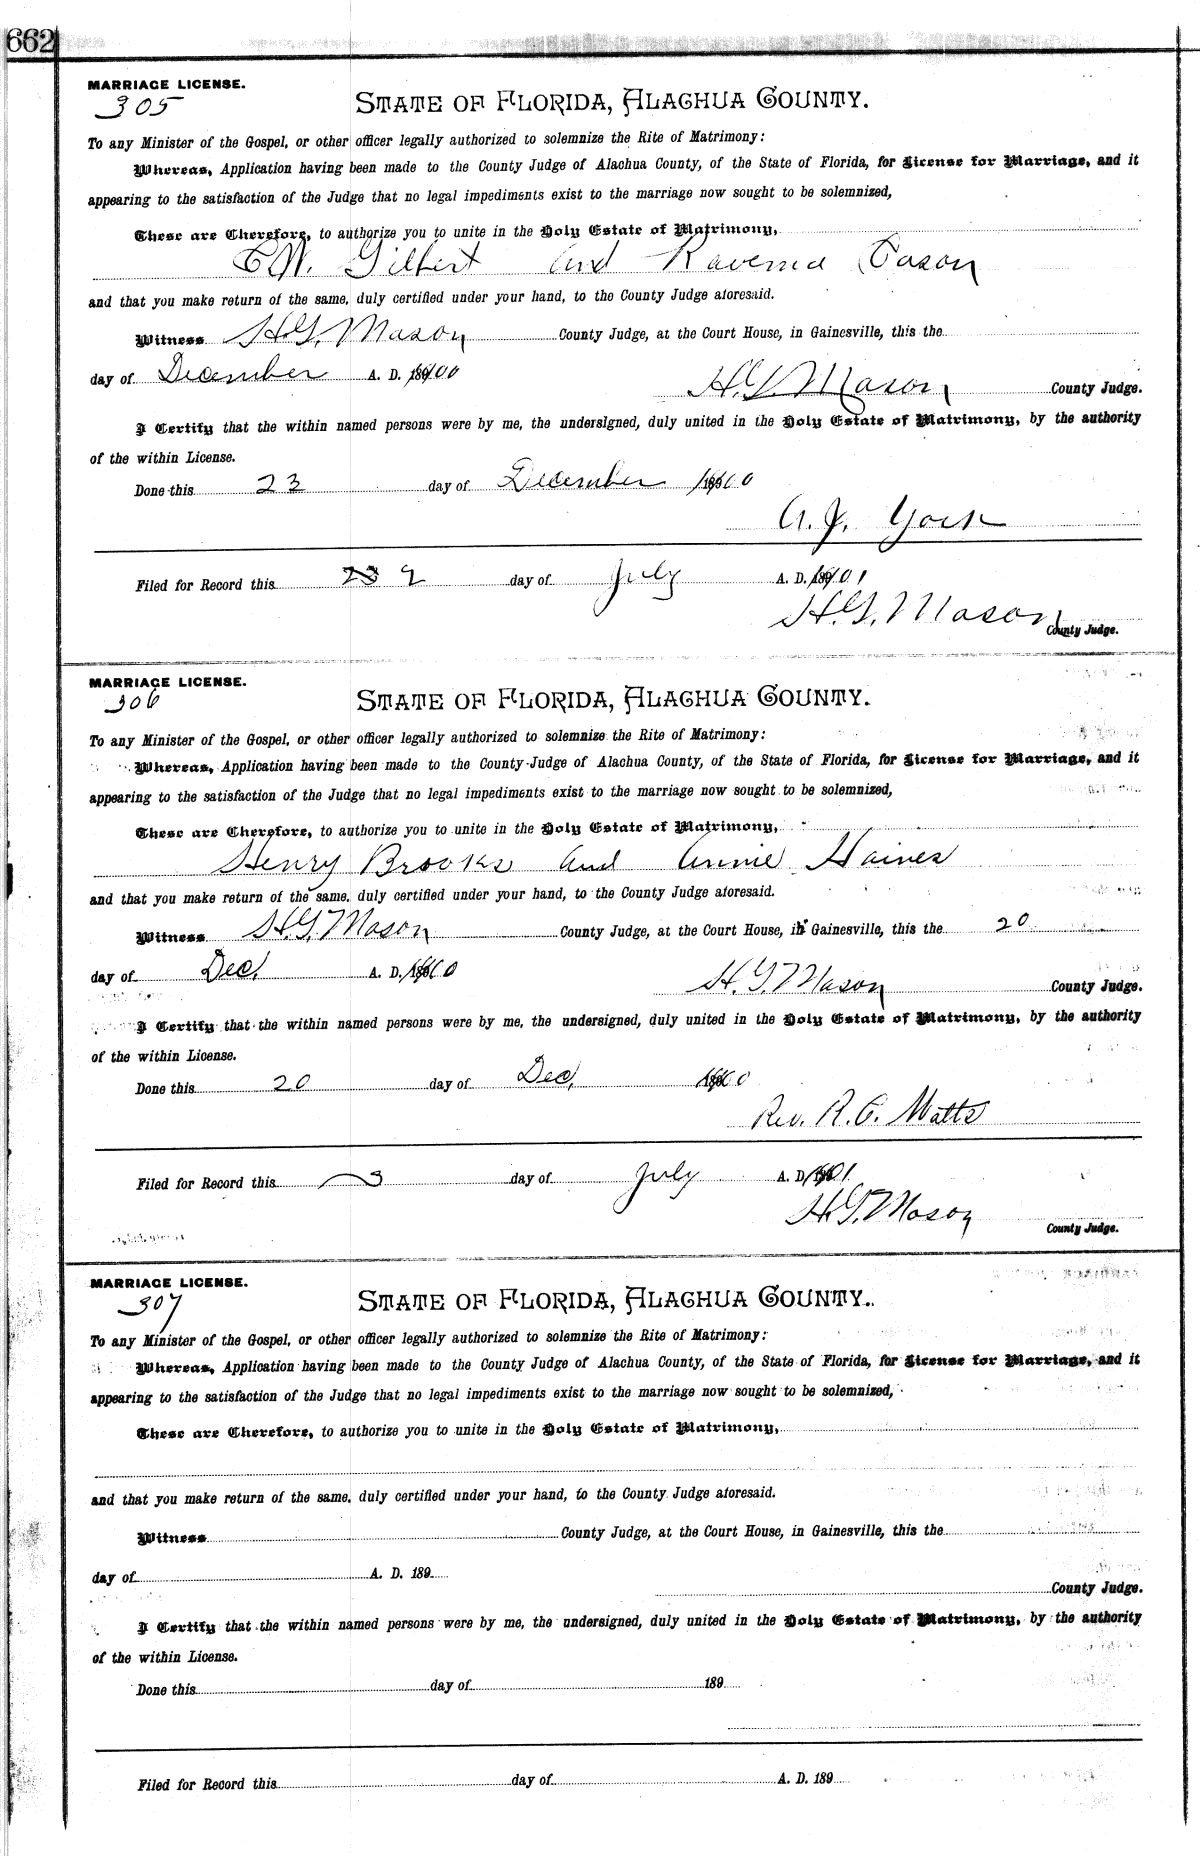 662
MARRIAGE LICENSE.
305
STATE OF FLORIDA, ALACHUA COUNTY.
To any Minister of the Gospel, or other officer legally authorized to solemnize the Rite of Matrimony:
Whereas, Application having been made to the County Judge of Alachua County, of the State of Florida, for License for Marriage, and it
appearing to the satisfaction of the Judge that no legal impediments exist to the marriage now sought to be solemnized,
These are Therefore, to authorize you to unite in the Holy Estate of Matrimony,
C.W. Gilbert and Ravenna Cason
and that you make return of the same, duly certified under your hand, to the County Judge aforesaid.
Witness H.G. Mason County Judge, at the Court House, in Gainesville, this the
day of December A. D. 1900
H.G. Mason County Judge.
I Certify that the within named persons were by me, the undersigned, duly united in the Holy Estate of Matrimony, by the authority
of the within License.
Done this 23 day of December 1900
A. J. York
Filed for Record this 2 day of July A. D. 1901
H.G. Mason
County Judge.
MARRIAGE LICENSE.
306
STATE OF FLORIDA, ALACHUA COUNTY.
To any Minister of the Gospel, or other officer legally authorized to solemnize the Rite of Matrimony:
Whereas, Application having been made to the County Judge of Alachua County, of the State of Florida, for License for Marriage, and it
appearing to the satisfaction of the Judge that no legal impediments exist to the marriage now sought to be solemnized,
These are Therefore, to authorize you to unite in the Holy Estate of Matrimony,
Henry Brooks and Annie Haines
and that you make return of the same, duly certified under your hand, to the County Judge aforesaid.
Witness H.G. Mason County Judge, at the Court House, in Gainesville, this the 20
day of Dec. A. D. 1900
H.G. Mason County Judge.
I Certify that the within named persons were by me, the undersigned, duly united in the Holy Estate of Matrimony, by the authority
of the within License.
Done this 20 day of Dec, 1900
Rev. R. C. Watts
Filed for Record this 3 day of July A. D. 1901
H.G. Mason
County Judge.
MARRIAGE LICENSE.
307
STATE OF FLORIDA, ALACHUA COUNTY.
To any Minister of the Gospel, or other officer legally authorized to solemnize the Rite of Matrimony:
Whereas, Application having been made to the County Judge of Alachua County, of the State of Florida, for License for Marriage, and it
appearing to the satisfaction of the Judge that no legal impediments exist to the marriage now sought to be solemnized,
These are Therefore, to authorize you to unite in the Holy Estate of Matrimony,
and that you make return of the same, duly certified under your hand, to the County Judge aforesaid.
Witness County Judge, at the Court House, in Gainesville, this the
day of A. D. 189
County Judge.
I Certify that the within named persons were by me, the undersigned, duly united in the Holy Estate of Matrimony, by the authority
of the within License.
Done this day of 189
Filed for Record this day of A. D. 189